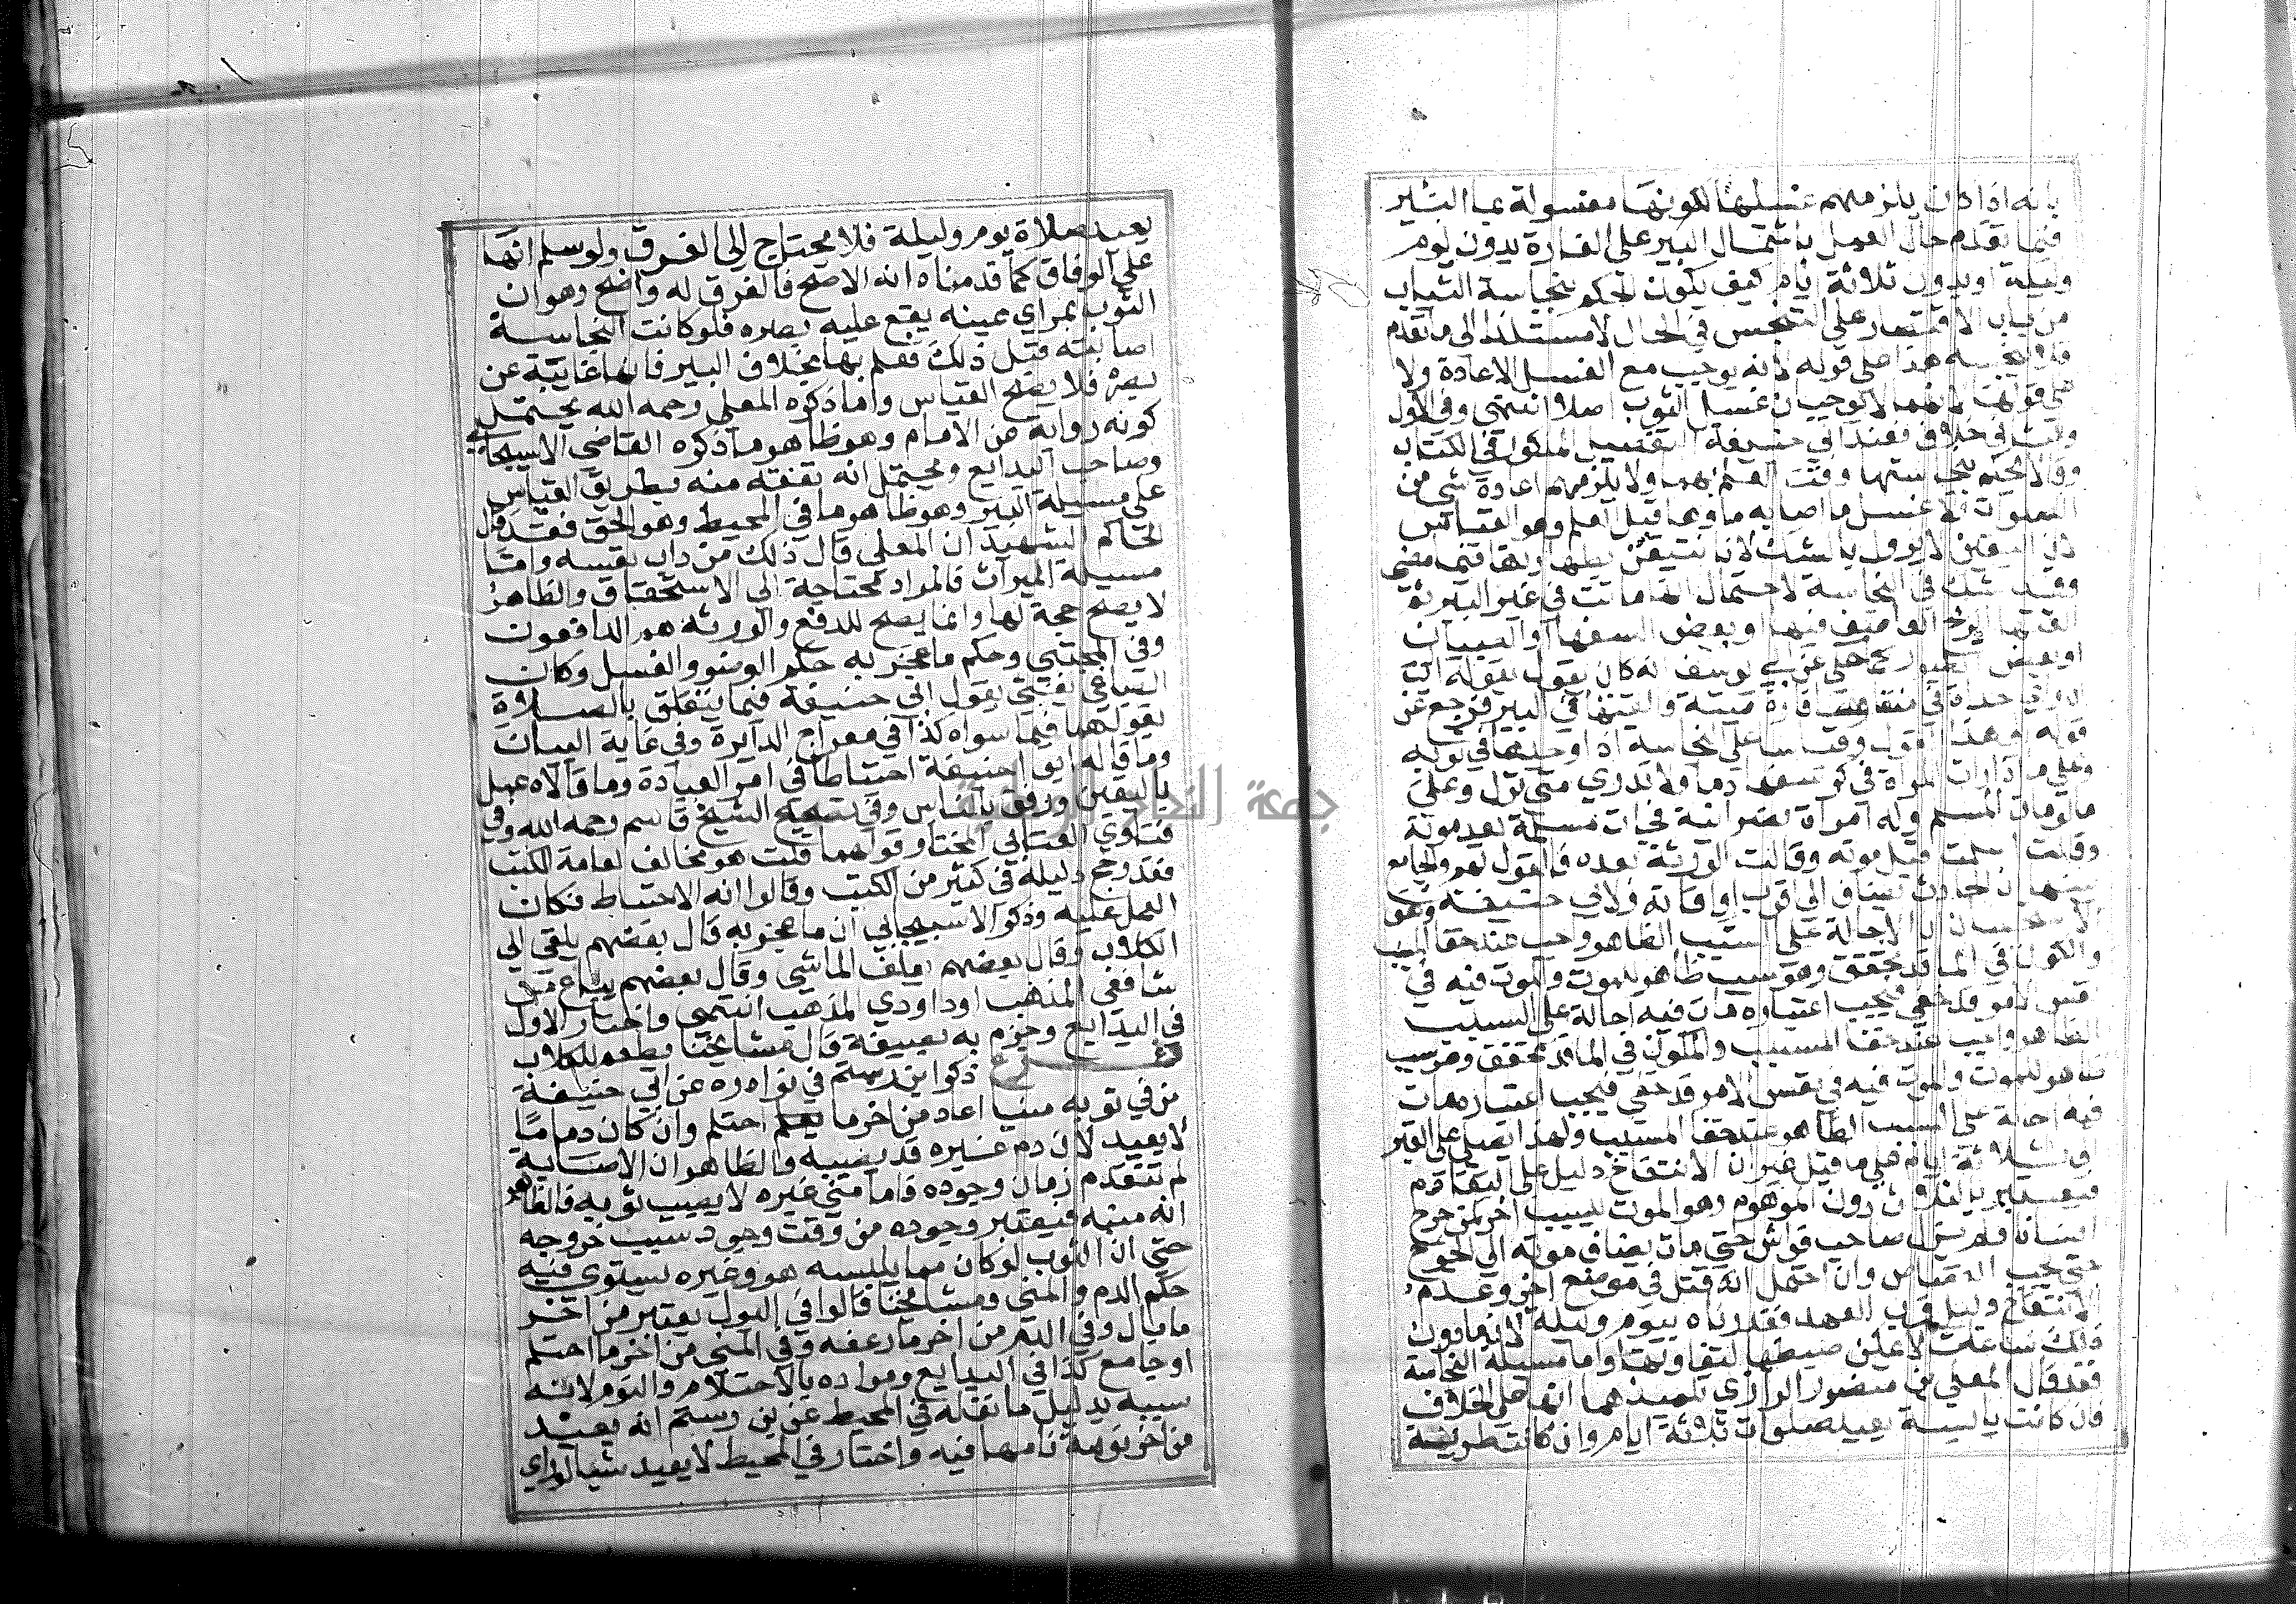 بانه اذا كان يلزمهم غسلها لكونها مغسولة بما البئير
فيما تقدم حال العمل باشتمال البير على الفارة بدون يوم
وليلة او بدون ثلاثة ايام كيف يكون الحكم بنجاسة الثياب
من باب الاقتصار على التنجس في الحال لا مستندا الى ما تقدم
هذا على قوله لانه يوجب مع الغسل الاعادة ولا
على قولهما لانهما لا يوجبان غسل الثوب اصلا انتهى وفي الاول
خلاف فعند ابي حنيفة التفصيل المذكور في الكتاب
وقالا يحكم بنجاستها وقت العلم بها ولا يلزمهم اعادة شي من
الصلوات ولا غسل ما اصابه ماوها قبل العلم وهو القياس
لان اليقين لا يزول بالشك لانا نتيقن بطهارتها فيما مضى
وقد شك في النجاسة لاحتمال انها ماتت في غير البير ثم
القتها الريح العاصف فيها او بعض السفها او الصبيان
او بعض الطيور كما حكي عن ابي يوسف انه كان يقول بقوله الى
ان راى حداة في منقارها فارة ميتة والقتها في البير فرجع عن
قوله هذا القول وقياسا على النجاسة اذا وجدها في ثوبه
وعلى ما اذا رات المراة في كرسفها دما ولا تدري متى نزل وعلى
ما لو مات المسلم وله امراة نصرانية فجات مسلمة بعد موته
وقالت اسلمت قبل موته وقالت الورثة بعده فالقول لهم والجامع
بينهما ان الحادث يضاف الى اقرب اوقاته ولابي حنيفة وهو
الاستحسان ان الاحالة على السبب الظاهر واجب عند خفا المسبب
والكون في الما قد تحقق وهو سبب ظاهر للموت والموت فيه في
نفس الامر قد خفي فيجب اعتباره مات فيه احالة على السبب
الظاهر واجب عند خفا المسبب والكون في الما قد تحقق وهو سبب
ظاهر للموت والموت فيه في نفس الامر قد خفي فيجب اعتباره مات
فيه احالة على السبب الظاهر عند خفا المسبب ولهذا يصلي على القبر
الى ثلاثة ايام على ما قيل غير ان الانتفاخ دليل على التقادم
دون الموهوم وهو الموت لسبب اخر كمن جرح
انسانا فلم يزل صاحب فراش حتى مات يضاف موته الى الجرح
حتى يجب القصاص وان احتمل انه قتل في موضع اخر وعدم
الانتفاخ دليل قرب العهد فقدرناه بيوم وليلة لان ما دون
ذلك ساعات لا يمكن ضبطها لتفاوتها واما مسيلة النجاسة
فقد قال المعلى بن منصور الرازي تلميذهما انها على الخلاف
فان كانت يابسة يعيد صلوات ثلاثة ايام وان كانت طرية
يعيد صلاة يوم وليلة فلا محتاج الى الفرق ولو سلم انها
على الوفاق كما قدمناه انه الاصح فالفرق له واضح وهو ان
الثوب بمراي عينه يقع عليه بصره فلو كانت النجاسة
اصابته قبل ذلك فعلم بها بخلاف البير فانها غايبة عن
بصره فلا يصلح القياس واما ذكره المعلى رحمه الله يحتمل
كونه رواية عن الامام وهو ظاهر ما ذكره القاضي الاسبيجابي
وصاحب البدايع ومحتمل انه تفقه منه بطريق القياس
على مسيلة البير وهو ظاهر ما في المحيط وهو الحق فقد قال
الحاكم الشهيد ان المعلى قال ذلك من راي نفسه واما
مسيلة الميراث فالمراد محتاجة الى الاستحقاق والظاهر
لا يصلح حجة لها وانما يصلح للدفع والورثة هم الدافعون
وفي المجتبى وحكم ما عجن به حكم الوضو والغسل وكان
الصباغي يفتي بقول ابي حنيفة فيما يتعلق بالصلاة
بقولهما فيما سواه كذا في معراج الدراية وفي غاية البيان
وما قاله ابو حنيفة احتياطا في امر العبادة وما قالاه عمل
باليقين ورفق بالناس وفي تصحيح الشيخ قاسم رحمه الله وفي
فتاوي العتابي المختار قولهما قلت هو مخالف لعامة الكتب
فقد رجح دليله في كثير من الكتب وقالوا انه الاحتياط فكان
العمل عليه وذكر الاسبيجابي ان ما عجن به قال بعضهم يلقى الى
الكلاب وقال بعضهم يعلف المواشي وقال بعضهم يباع من
شافعي المذهب او داودي المذهب انتهى واختار الاول
في البدايع وجزم به بصيغة قال مشايخنا يطعم للكلاب
فرع ذكر ابن رستم في نوادره عن ابي حنيفة
من في ثوبه منيا اعاد من اخر ما احتلم وان كان دما ما
لا يعيد لان دم غيره قد يصيبه والظاهر ان الاصابة
لم تتقدم زمان وجوده فاما مني غيره لا يصيب ثوبه فالظاهر
انه منيه فيعتبر وجوده من وقت وجود سبب خروجه
حتى ان الثوب لو كان مما يلبسه هو وغيره يستوي فيه
حكم الدم والمني ومشايخنا قالوا في البول يعتبر من اخر
ما بال وفي الدم من اخر ما رعف وفي المني من اخر ما احتلم
او جامع كذا في البدايع ومراده بالاحتلام والنوم لانه
سببه بدليل ما نقله في المحيط عن بن رستم انه يعيد
من اخر نومة نامها فيه واختار في المحيط لا يعيد شيا لو راي